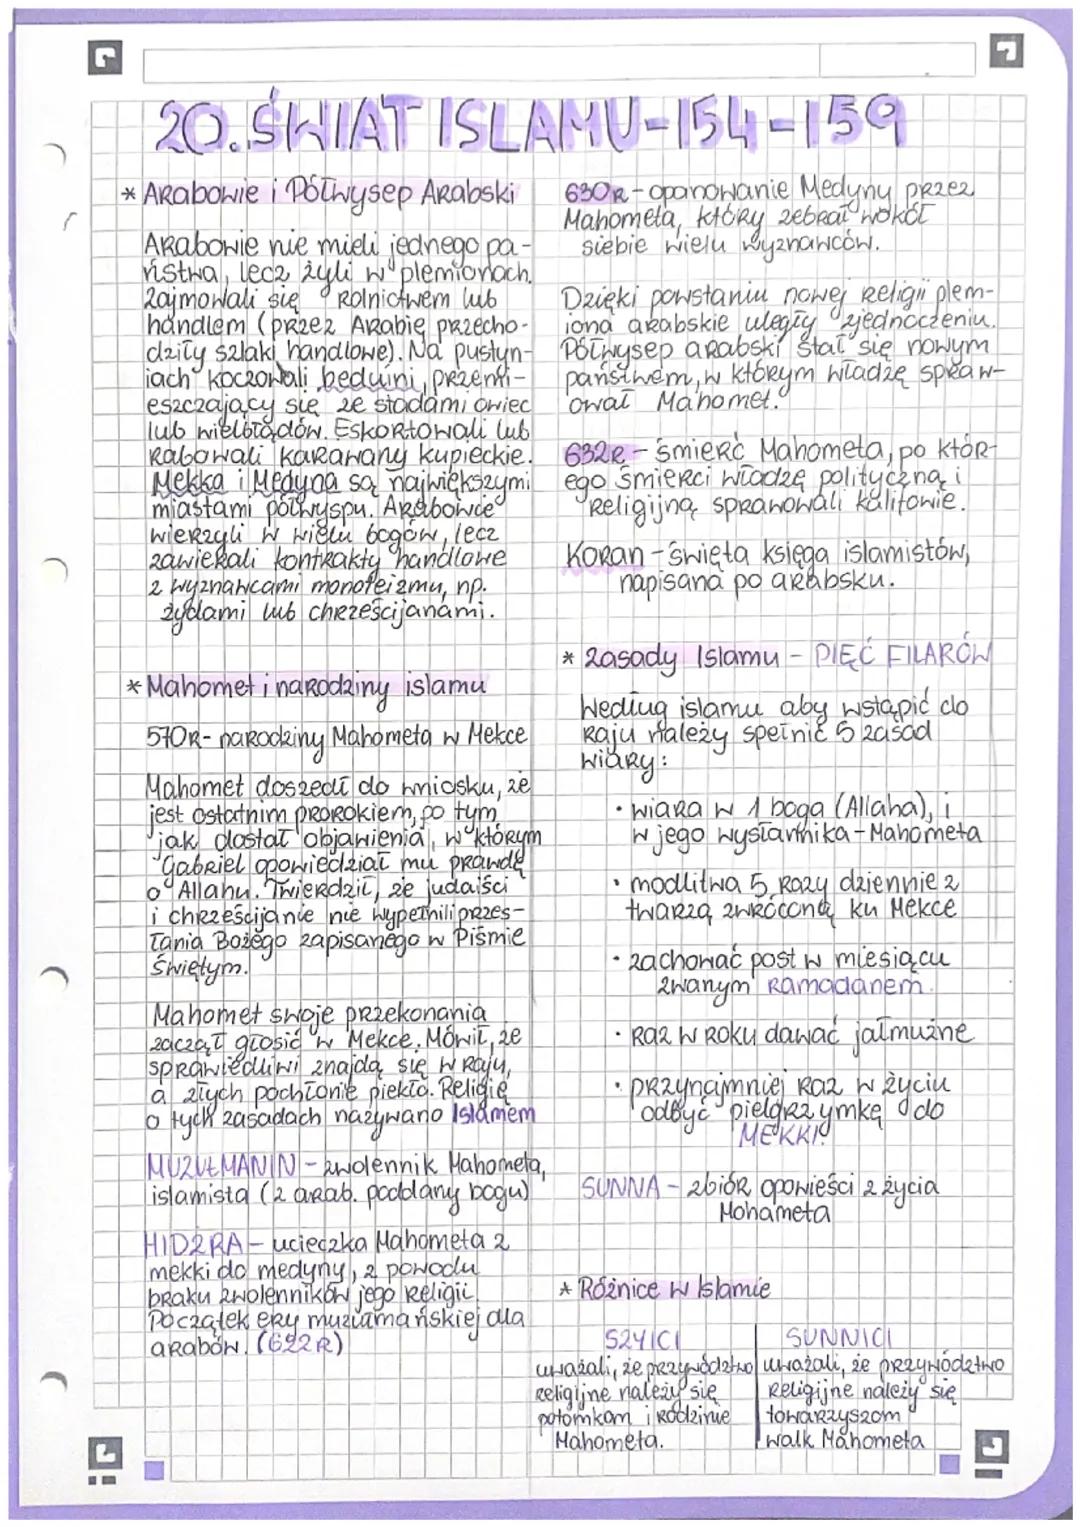 20. ŚWIAT ISLAMU-154-159
* Arabowie i Półwysep Arabski
Arabowie nie mieli jednego pa-
ństwa, lecz żyli w plemionach.
Zajmowali się rolnictwem lub
handlem (przez Arabię przecho-
dziły szlaki handlowe). Na pustyn-
iach koczowali beduini, przemi-
eszczający się ze stadami owiec
lub wielbłądów. Eskortowali lub
rabowali karawany kupieckie.
Mekka i Medyna są największymi
miastami półwyspu. Arabowie
wierzyli w wielu bogów, lecz
zawierali kontrakty handlowe
z wyznawcami monoteizmu, np.
żydami lub chrześcijanami.
* Mahomet i narodziny islamu
570R- narodziny Mahometa w Mekce
Mahomet doszedł do wniosku, że
jest ostatnim prorokiem, po tym
jak dostał objawienia, w którym
Gabriel opowiedział mu prawdę
o Allahu. Twierdził, że judaiści
i chrześcijanie nie wypełnili przes-
łania Bożego zapisanego w Piśmie
Świętym.
Mahomet swoje przekonania
zaczął głosić w Mekce. Mówił, że
sprawiedliwi znajdą się w raju,
a złych pochłonie piekło. Religię
o tych zasadach nazywano Islamem
MUZUŁMANIN - zwolennik Mahometa,
islamista (z arab. poddany bogu)
HIDŻRA - ucieczka Mahometa z
mekki do medyny, z powodu
braku zwolenników jego religii.
Początek ery muzułmańskiej dla
arabów. (622R)
630R - opanowanie Medyny przez
Mahometa, który zebrał wokół
siebie wielu wyznawców.
Dzięki powstaniu nowej religii plem-
iona arabskie uległy zjednoczeniu.
Półwysep arabski stał się nowym
państwem, w którym władzę spraw-
ował Mahomet.
632R - śmierć Mahometa, po któr-
ego śmierci władzę polityczną i
religijną sprawowali kalifowie.
KORAN - święta księga islamistów,
napisana po arabsku.
* Zasady Islamu - PIĘĆ FILARÓW
Według islamu aby wstąpić do
raju należy spełnić 5 zasad
wiary:
• wiara w 1 boga (Allaha), i
w jego wysłannika - Mahometa
• modlitwa 5 razy dziennie z
twarzą zwróconą ku Mekce
• zachować post w miesiącu
zwanym Ramadanem.
• raz w roku dawać jałmużne
• przynajmniej raz w życiu
odbyć pielgrzymkę do
MEKKI!
SUNNA - zbiór opowieści z życia
Mohameta
* Różnice w Islamie
SZYICI
uważali, że przywództwo
religijne należy się
potomkom i rodzinie
Mahometa.
SUNNICI
uważali, że przywództwo
religijne należy się
towarzyszom
walk Mahometa